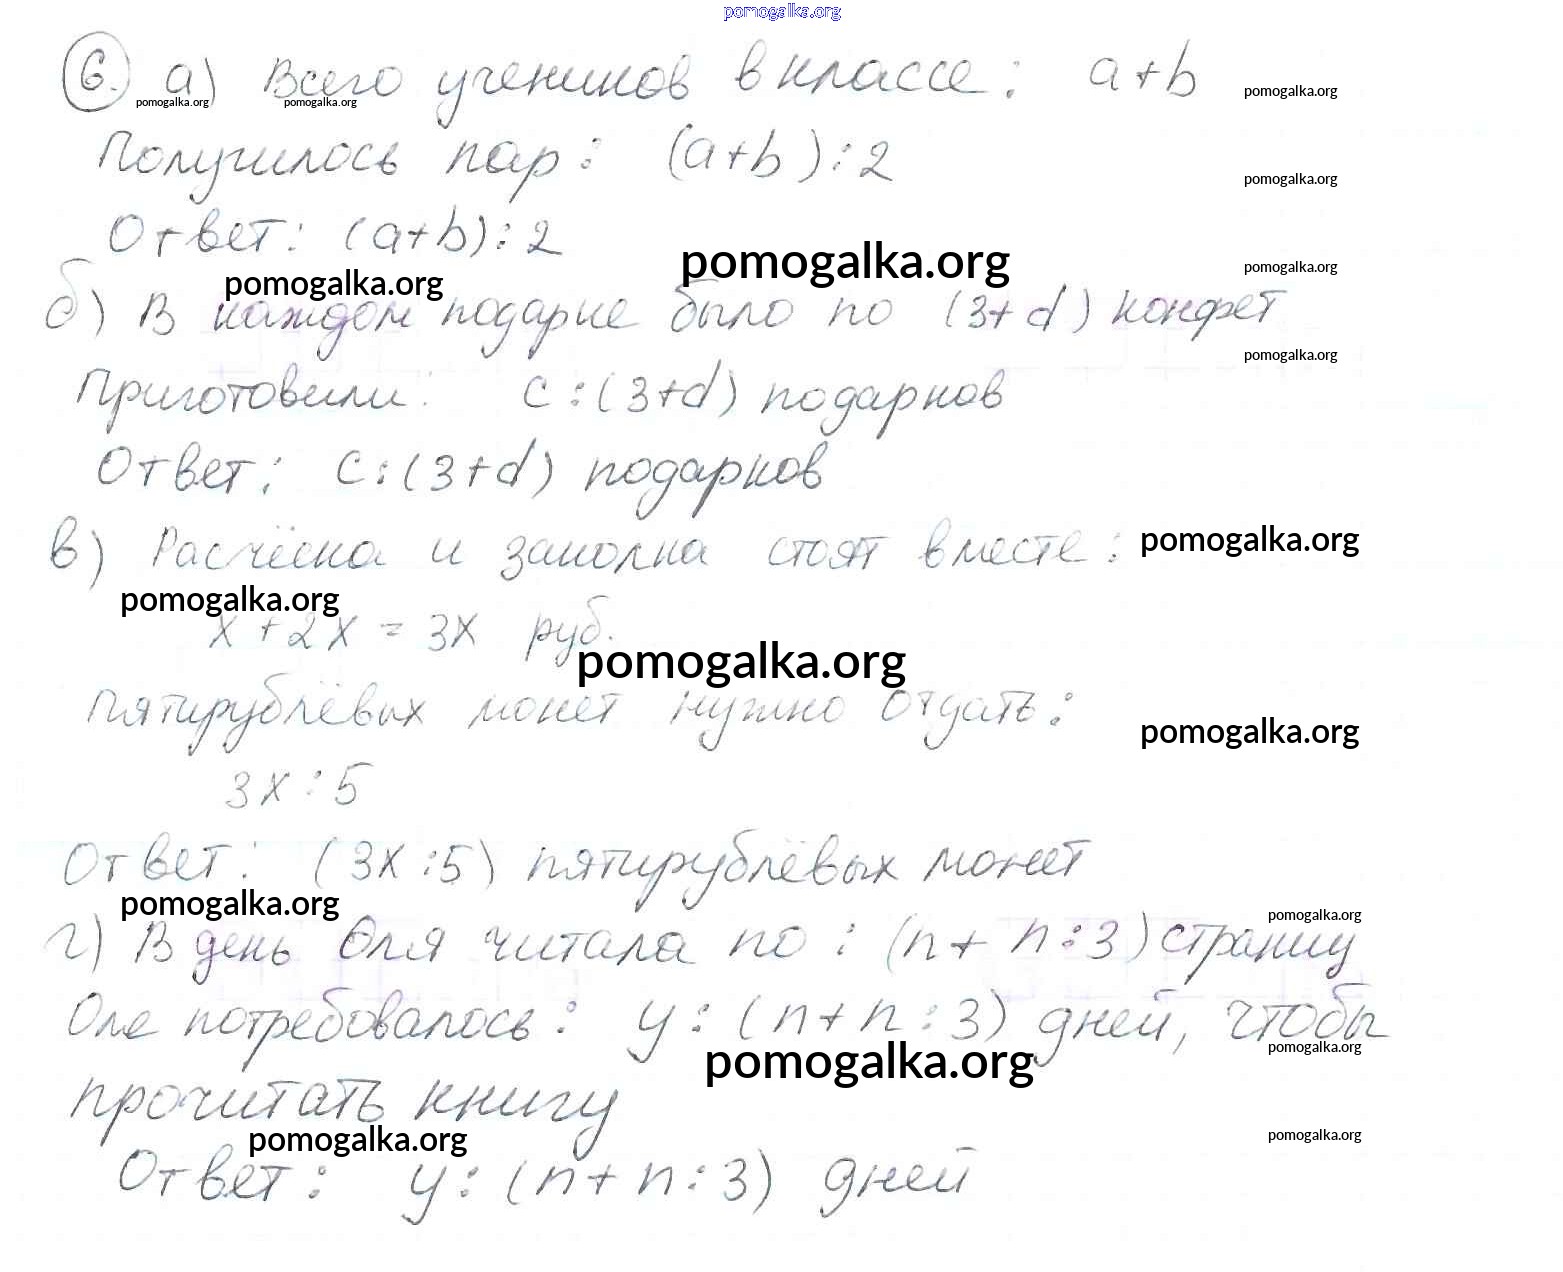 pomogalka.org
6. а) Всего учеников в классе: a+b
pomogalka.org pomogalka.org pomogalka.org
Получилось пар: (a+b):2
pomogalka.org
Ответ: (a+b):2
pomogalka.org pomogalka.org pomogalka.org
б) В каждом подарке было по (3+d) конфет
pomogalka.org
Приготовили: c:(3+d) подарков
Ответ: c:(3+d) подарков
в) Расчёска и заколка стоят вместе:
pomogalka.org
pomogalka.org
x+2x=3x руб.
pomogalka.org
Пятирублёвых монет нужно отдать:
pomogalka.org
3x:5
Ответ: (3x:5) пятирублёвых монет
pomogalka.org pomogalka.org
г) В день Оля читала по: (n+n:3) страниц
Оле потребовалось: y:(n+n:3) дней, чтобы
pomogalka.org pomogalka.org
прочитать книгу
pomogalka.org pomogalka.org
Ответ: y:(n+n:3) дней